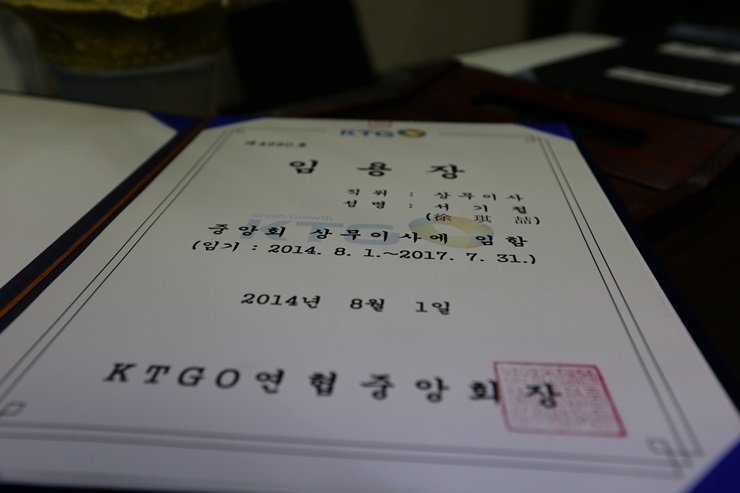 KTGO
제4990호
임 용 장
직 위 : 상무이사
성 명 : 서 기 철
(徐 琪 喆)
Green Growth
KTGO
중앙회 상무이사에 임함
(임기 : 2014. 8. 1.~2017. 7. 31.)
2014년 8월 1일
KTGO연협중앙회장